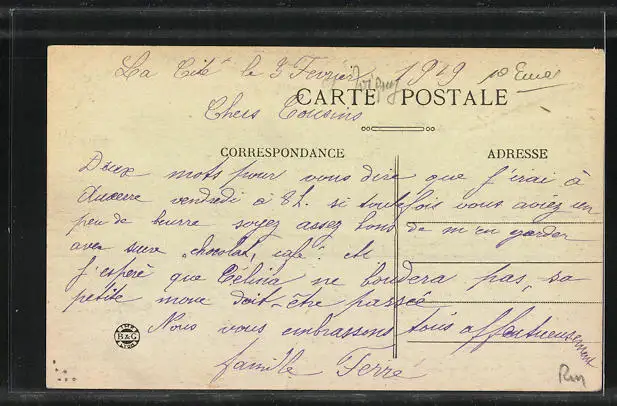 La Cité le 3 Fevrier 1919
CARTE POSTALE
Chers Cousins
CORRESPONDANCE
ADRESSE
Deux mots pour vous dire que j'irai à
Auxerre vendredi à 8h. si toutefois vous aviez un
peu de beurre soyez assez bons de m'en garder
avec sucre, chocolat, café. et
J'espère que Célina ne boudera pas, sa
petite moue doit-être passée
Nous vous embrassons tous affectueusement
famille Ferré
IMP
B&G
LYON
Rm